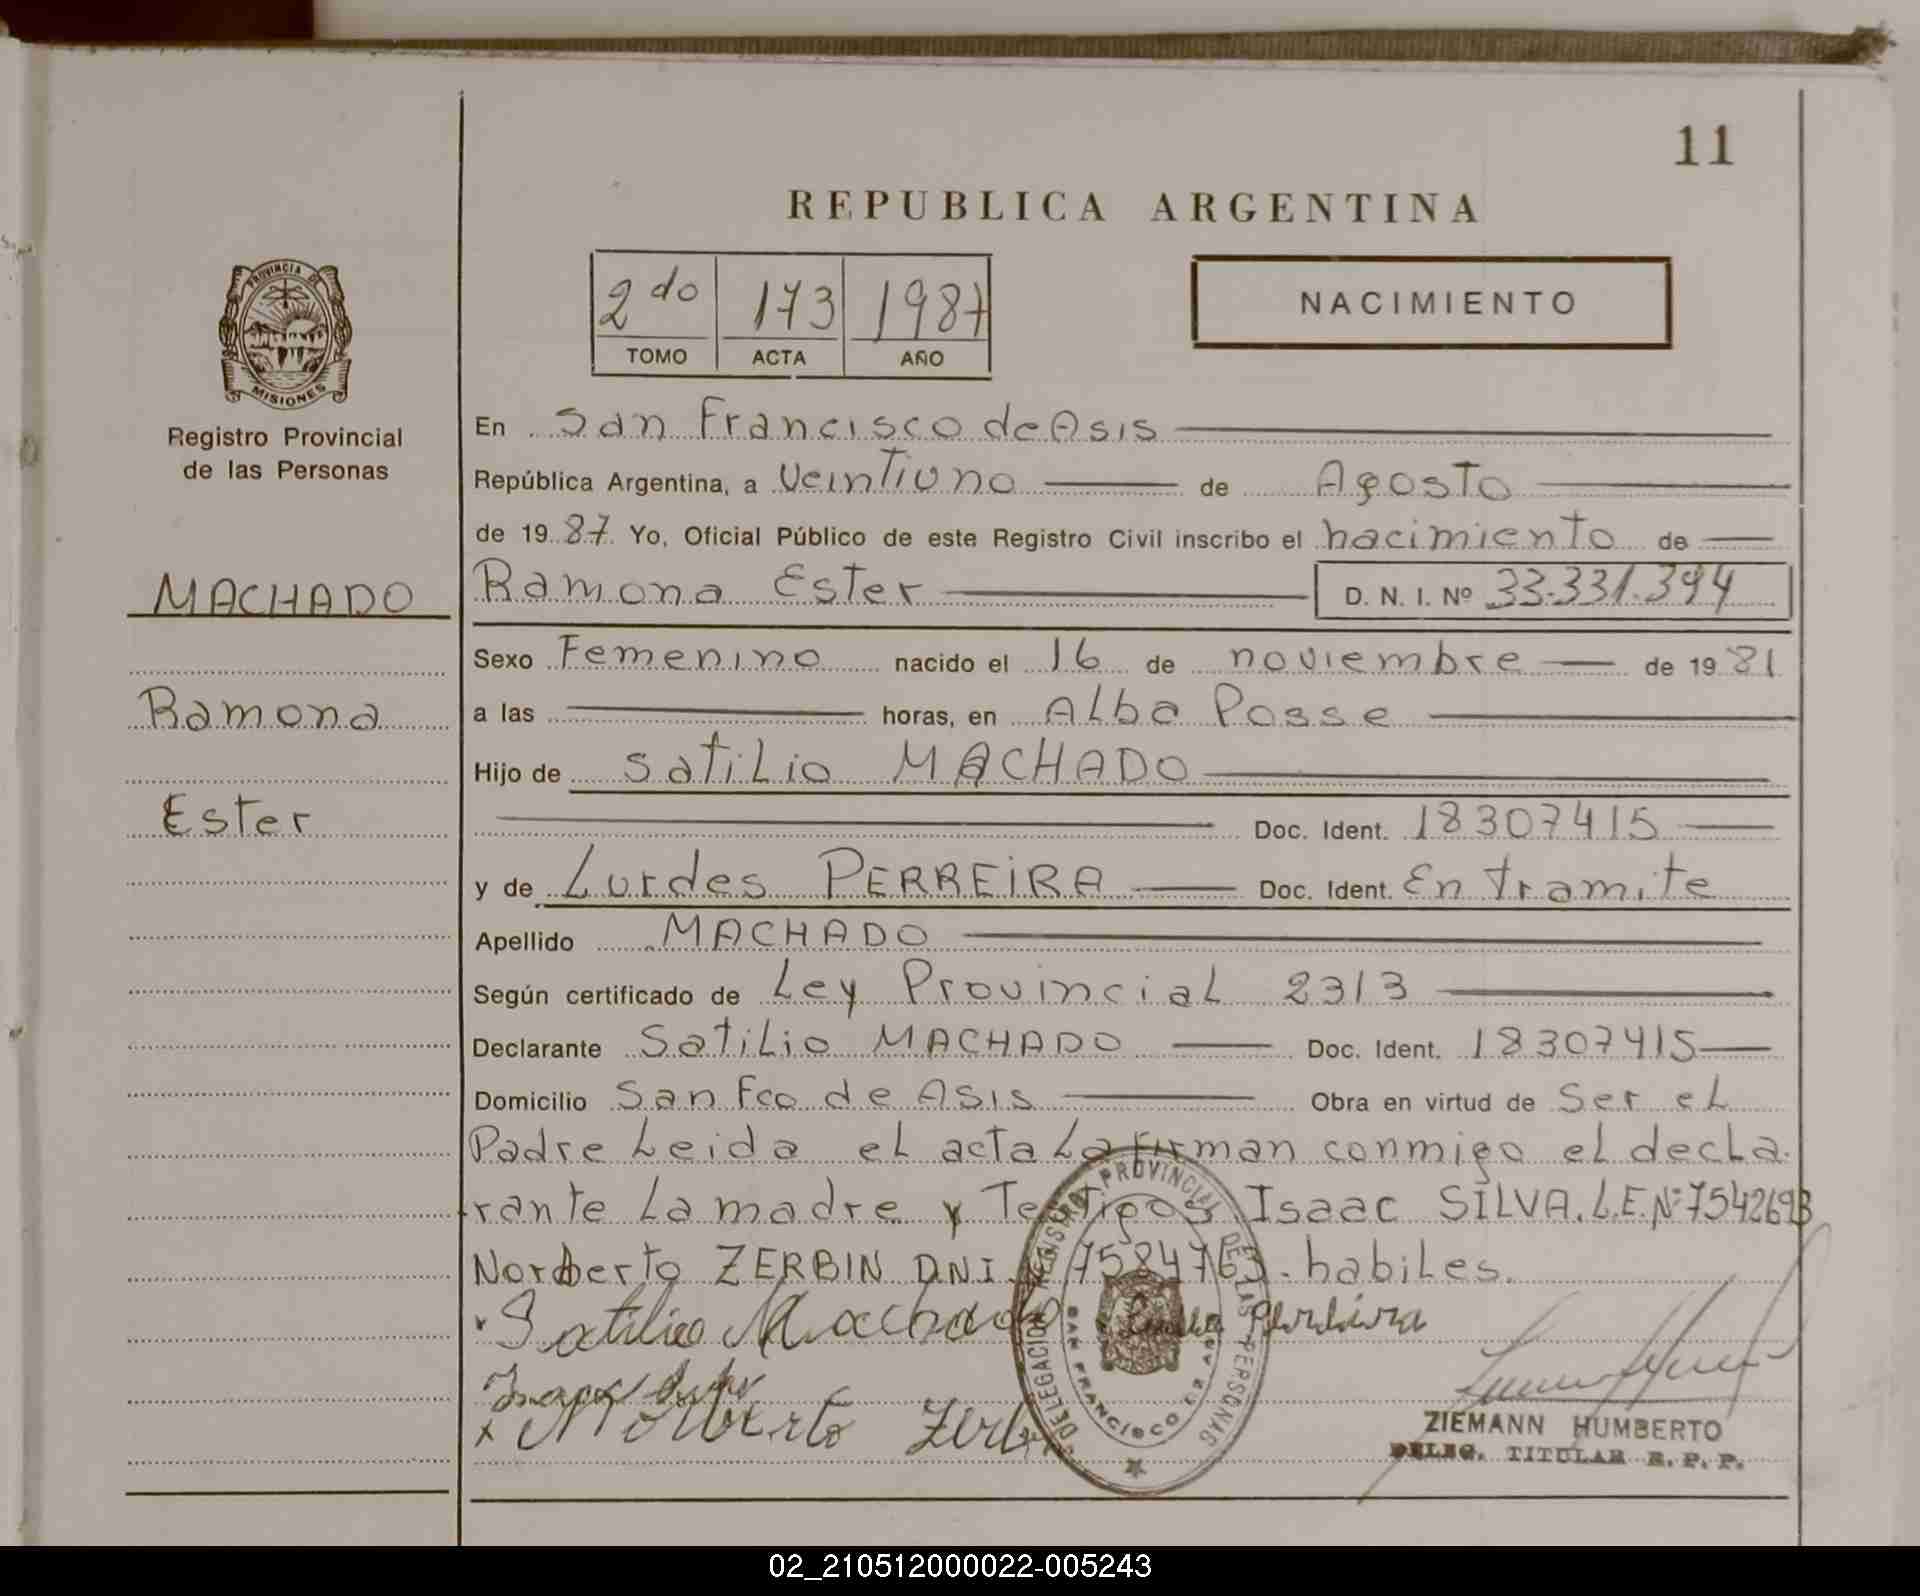 11
REPUBLICA ARGENTINA
2do 173 1987
TOMO ACTA AÑO
NACIMIENTO
PROVINCIA DE
MISIONES
Registro Provincial
de las Personas
MACHADO
Ramona
Ester
En San Francisco de Asis
República Argentina, a Veintiuno de Agosto
de 1987 Yo, Oficial Público de este Registro Civil inscribo el nacimiento de
Ramona Ester D. N. I. Nº 33.331.394
Sexo Femenino nacido el 16 de noviembre de 1981
a las horas, en Alba Posse
Hijo de Satilio MACHADO
Doc. Ident. 18307415
y de Lurdes PERREIRA Doc. Ident. En tramite
Apellido MACHADO
Según certificado de Ley Provincial 2313
Declarante Satilio MACHADO Doc. Ident. 18307415
Domicilio San Fco de Asis Obra en virtud de Ser el
Padre Leida el acta La firman conmigo el decla-
rante La madre y Testigos Isaac SILVA. L.E.Nº 7542693
Norberto ZERBIN D.N.I. 7584763. habiles.
Satilio Machado Perreira
Norberto Zerbin
DELEGACION REGISTRO PROVINCIAL DE LAS PERSONAS
SAN FRANCISCO DE ASIS
ZIEMANN HUMBERTO
DELEG. TITULAR R. P. P.
02_210512000022-005243